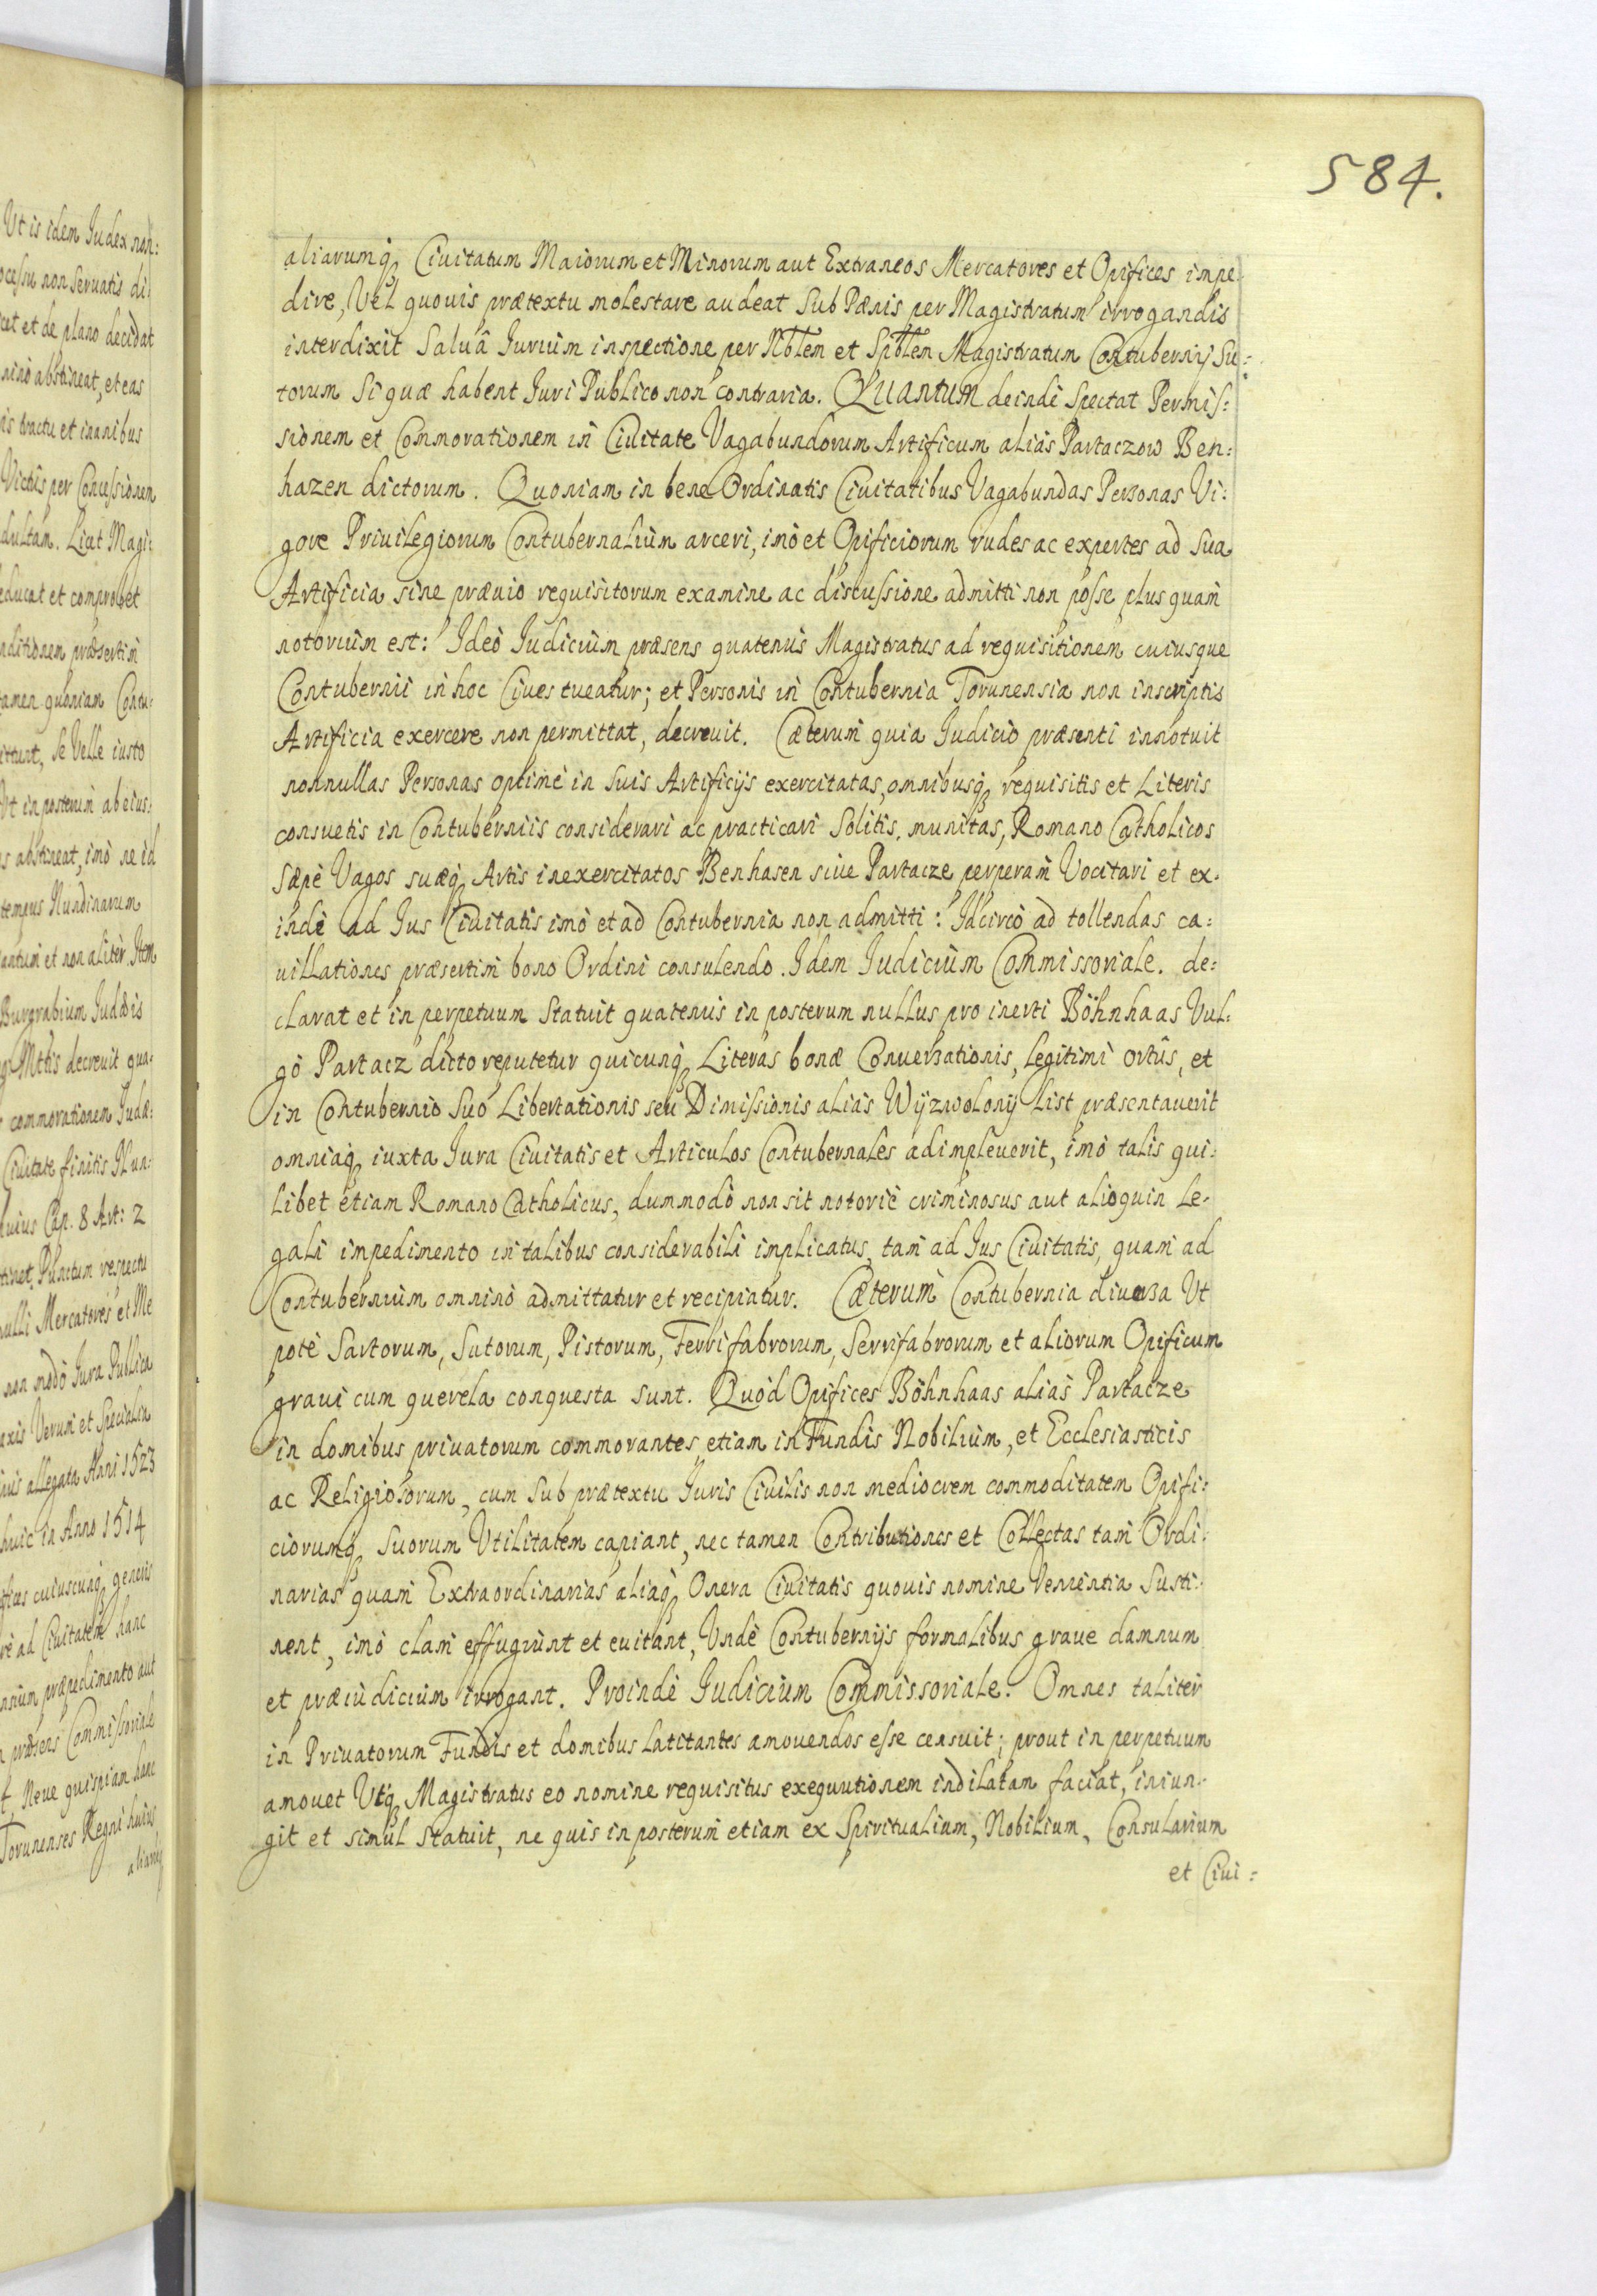 584.
aliarumq́ Ciuitatum Maiorum et Minorum aut Extraneos Mercatores et Opifices impe-
dire, Vel quouis prætextu molestare audeat Sub Pænis per Magistratum irrogandis
interdixit Saluâ Iurium inspectione per Nbłem et Spbłem Magistratum Contubernij Su:
torum Si quæ habent Iuri Publico non contraria. QUANTUM deindè Spectat Permis:
sionem et Commorationem in Ciuitate Vagabundorum Artificum aliàs Partaczow Ben:
hazen dictorum. Quoniam in bene Ordinatis Ciuitatibus Vagabundas Personas Vi:
gore Priuilegiorum Contubernalium arceri, imò et Opificiorum rudes ac expertes ad Sua
Artificia sine præuio requisitorum examine ac discussione admitti non posse plus quam
notorium est: Ideò Iudicium præsens quatenus Magistratus ad requisitionem cuiusque
Contubernii in hoc Ciues tueatur; et Personis in Contubernia Torunensia non inscriptis
Artificia exercere non permittat, decreuit. Cæterum quia Iudicio præsenti innotuit
nonnullas Personas optimè in Suis Artificijs exercitatas, omnibusq́ requisitis et Literis
consuetis in Contuberniis considerari ac practicari Solitis, munitas, Romano Catholicos
Sæpè Vagos suæq́ Artis inexercitatos Benhasen siue Partacze perperam Vocitari et ex-
indè ad Ius Ciuitatis imò et ad Contubernia non admitti: Idcircò ad tollendas ca:
uillationes præsertim bono Ordini consulendo. Idem Iudicium Commissoriale. de:
clarat et in perpetuum Statuit quatenus in posterum nullus pro inerti Böhnhaas Vul:
gò Partacz dicto reputetur quicunq́ Literas bonæ Conuersationis, legitimi ortûs, et
in Contubernio Suo Libertationis seu Dimissionis aliàs Wyzwolony List præsentauerit
omniaq́ iuxta Iura Ciuitatis et Articulos Contubernales adimpleuerit, imò talis qui:
libet etiam Romano Catholicus, dummodò non sit notoriè criminosus aut alioquin le-
gali impedimento in talibus considerabili implicatus, tam ad Ius Ciuitatis, quam ad
Contubernium omninò admittatur et recipiatur. Cæterum Contubernia diuersa Ut
potè Sartorum, Sutorum, Pistorum, Ferrifabrorum, Serrifabrorum et aliorum Opificum
graui cum querela conquesta sunt. Quòd Opifices Böhnhaas aliàs Partacze
in domibus priuatorum commorantes etiam in Fundis Nobilium, et Ecclesiasticis
ac Religiosorum, cum Sub prætextu Iuris Ciuilis non mediocrem commoditatem Opifi:
ciorumq́ Suorum Utilitatem capiant, nec tamen Contributiones et Collectas tam Ordi:
narias quam Extraordinarias aliaq́ Onera Ciuitatis quouis nomine Venientia Susti:
nent, imò clam effugiunt et euitant, Undè Contubernijs formalibus graue damnum
et præiudicium irrogant. Proindè Iudicium Commissoriale. Omnes taliter
in Priuatorum Fundis et domibus latitantes amouendos esse censuit; prout in perpetuum
amouet Utq́ Magistratus eo nomine requisitus exequutionem indilatam faciat, iniun-
git et simul Statuit, ne quis in posterum etiam ex Spiritualium, Nobilium, Consularium
et Ciui:
Ut is idem Iudex non:
ocessu non Seruatis di
cet et de plano decidat
ninò abstineat, et eas
tractu et inanibus
Victûs per Concessionem
dultam. Licet Magi:
educat et comprobet
nditionem præsertim
tamen quoniam Contu:
ittunt, Se Velle iusto
Ut in posterum ab eius:
abstineat, imò ne id
tempus Nundinarum
tantum et non alitèr. Item
Burgrabium Iudæis
Mttis decreuit qua:
commorationem Iudæ:
Ciuitate finitis Nun:
huius Cap. 8 Art: 2
tinet, Punctum respectu
nulli Mercatores et Me
non modò Iura Publica
axis Verum et Specialia
allegata Anni 1523
huic in Anno 1514
ifices cuiuscunq́ generis
rè ad Ciuitatem hanc
præpedimento aut
præsens Commissoriale
t, Neue quispiam hanc
Torunenses Regni huius
aliarumq́